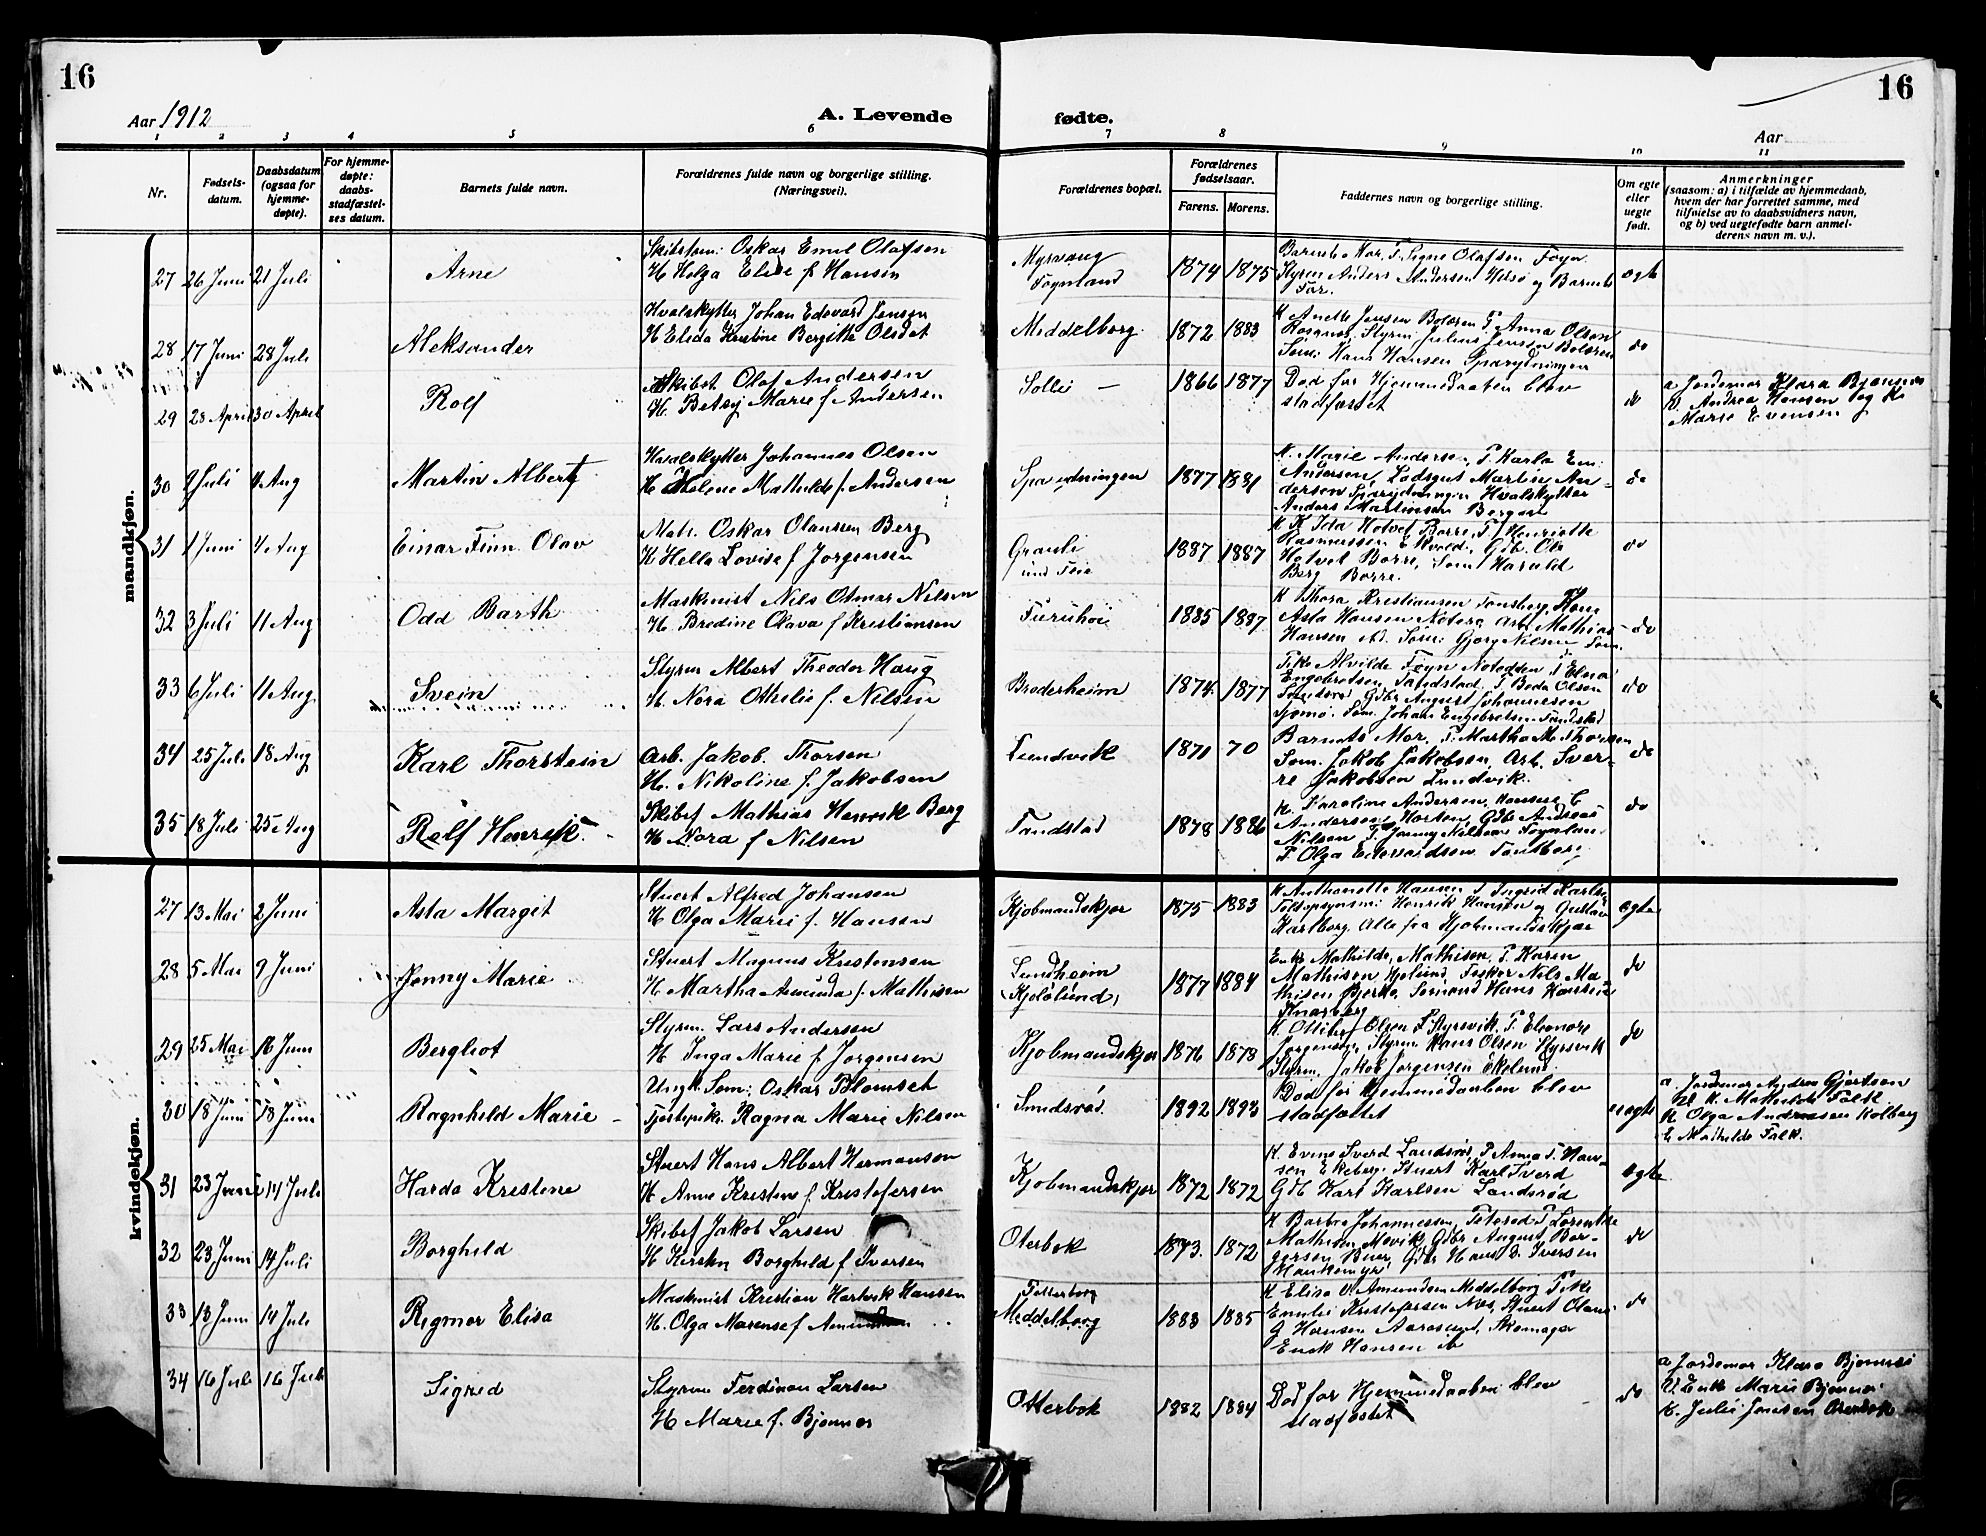 16
16
Aar 1912
A. Levende
fødte.
Aar
1 2 3 4 5 6 7 8 9 10 11
Nr.
Fødsels-
datum.
Daabsdatum
(ogsaa for
hjemme-
døpte).
For hjemme-
døpte:
daabs-
stadfæstel-
ses datum.
Barnets fulde navn.
Forældrenes fulde navn og borgerlige stilling.
(Næringsvei).
Forældrenes bopæl.
Forældrenes
fødselsaar.
Farens. Morens.
Faddernes navn og borgerlige stilling.
Om egte
eller
uegte
født.
Anmerkninger
(saasom: a) i tilfælde av hjemmedaab,
hvem der har forrettet samme, med
tilføielse av to daabsvidners navn,
og b) ved uegtefødte barn anmel-
derens navn m. v.).
mandkjøn.
27 26 Juni 21 Juli
Arne
Oskar Emil Olafsen
H. Helga Elise f. Hansen
Myrvang
Føynland
1874 1875
Barnets Mor, P. Signe Olafsen Føyn
Styrm Anders Andersen og Barnets
Far.
egte
28 17 Juni 28 Juli
Aleksander
Hvalskytter Johan Edvard Jensen
H. Elida Kristine Bergitte Olsdat
Middelborg
1872 1883
K Anette Jensen Bolæren P. Anna Olsen
Styrm Julius Jensen Bolæren
Søm: Hans Hansen
do
29 28 April 30 April
Rolf
Skibst Olaf Anderssen
H. Betsy Marie f Andersen
Solli —
1866 1877
Død før Hjemmedaaben blev
stadfæstet
do
a Jordemor Klara Bjønnes
V. Andrea Hansen og K
Marie Evensen
30 9 Juli 4 Aug
Martin Albert
Hvalskytter Johannes Olsen
H. Helene Mathilde f. Andersen
1877 1881
K. Marie Andersen, P. Karla Em:
Andersen, Lodsgut Martin An-
dersen Hvalskytter
Anders Martinsen Bergan
do
31 1 Juni 4 Aug
Einar Finn Olav
Matr. Oskar Olaussen Berg
H Hella Lovise f Jørgensen
Granli
1887 1887
K Ida Hotvet Borre, P. Henriette
Rasmussen Gdb. Ole
Hotvet Borre, Søm Harald
Berg Borre.
do
32 3 Juli 11 Aug
Odd Barth
Maskinist Nils Otmar Nilsen
H. Bredine Olava f Kristiansen
Furuhøi
1885 1887
K Thora Kristiansen Tønsberg, Kone
Asta Hansen Nøterø Arb. Mathias
Hansen Søm: Georg Nilsen
do
33 6 Juli 11 Aug
Svein
Styrm Albert Theodor Haug
H. Nora Othelie f. Nilsen
Broderheim
1874 1877
Frk. Alvilde Føyn Notodden P Elna
Engebretsen Tandstad. P Beda Olsen
Gdbr August Johannesen
Tjømø. Søm. Johan Engebretsen Tandstad
do
34 25 Juli 18 Aug
Karl Thorstein
Arb. Jakob Thorsen
H. Nikoline f. Jakobsen
Lundvik
1871 70
Barnets Mor, P. Martha M. Thorsen
Søm. Jakob Jakobsen, Arb. Sver-
re Jakobsen Lundvik.
do
35 18 Juli 25 Aug
Rolf Henrik
Skibsf Mathias Henrik Berg
H Nora f Nilsen
Tandstad
1878 1886
K. Karoline Andersen,
Andersen Horten, Gdb Andreas
Nilsen P. Jenny Nilsen Føynlan.
P Olga Edvardsen
do
kvindekjøn.
27 13 Mai 2 Juni
Asta Margit
Stuert Alfred Johansen
H Olga Marie f. Hansen
Kjøbmandskjær
1875 1883
K Anthonette Hansen P Ingrid Karls
Toldopsynsm: Henrik Hansen og Gustav
Karlberg. Alle fra Kjøbmandskjær
egte
28 5 Mai 9 Juni
Jenny Marie
Stuert Magnus Kristensen
H. Martha Amunda f. Mathisen
Lundheim
(Kjøløлund)
1877 1884
Enke Mathilde Mathisen, P. Karen
Mathisen Fisker Nils Ma
thisen Bjerke, Sømand Hans Hansen
Knarberg
do
29 25 Mai 16 Juni
Bergliot
Styrm. Lars Andersen
H Inga Marie f Jørgensen
Kjøbmandskjær
1876 1878
K. Ottilie Olsen P. Eleonore
Jørgensen, Styrm. Hans Olsen
Styrm. Jakob Jørgensen Ekelund
do
30 18 Juni 18 Juni
Ragnhild Marie
Ungk. Søm: Oskar Blomset
Tjenstepike Ragna Marie Nilsen
Sundsrød
1892 1893
Død før Hjemmedaaben blev
stadfæstet
uegte
a. Jordemor Andrea Gjertsen
K. Mathilde Falk
K Olga Andreassen Kolberg
E Mathilde Falk.
31 23 Juni 14 Juli
Harda Kristine
Stuert Hans Albert Hermansen
H Anne Kristine f Kristofersen
Kjøbmandskjær
1872 1872
K. Evine Sverd Landsrød, P Anna T. Han-
sen Ekeberg, Stuert Karl Sverd
Gdb Karl Karlsen Landsrød
egte
32 23 Juni 14 Juli
Borghild
Skibsf Jakob Larsen
H Kirstin Borghild f Iversen
Oterbæk
1873 1872
K Barbra Johannessen, P Lorentze
Mathisen Movik, Gdbr August Bør-
gersen Buer, Gdb Hans B. Iversen
do
33 13 Juni 14 Juli
Rigmor Elisa
Maskinist Kristian Hartvik Hansen
H. Olga Marense f Amundsen
Middelborg
1883 1885
K Elisa O. Amundsen Middelborg Pike
Emilie Kristofersen Næs, Stuert Olaus
G Hansen Aarøsund, Skomager
Enok Hansen
do
34 16 Juli 16 Juli
Sigrid
Styrm Ferdinan Larsen
H Marie f. Bjønnes
Otterbæk
1882 1884
Død før Hjemmedaaben blev
stadfæstet
do
a Jordemor Klara Bjønnes
V. Enke Marie Bjønnes
K. Julie Jensen Oterbæk